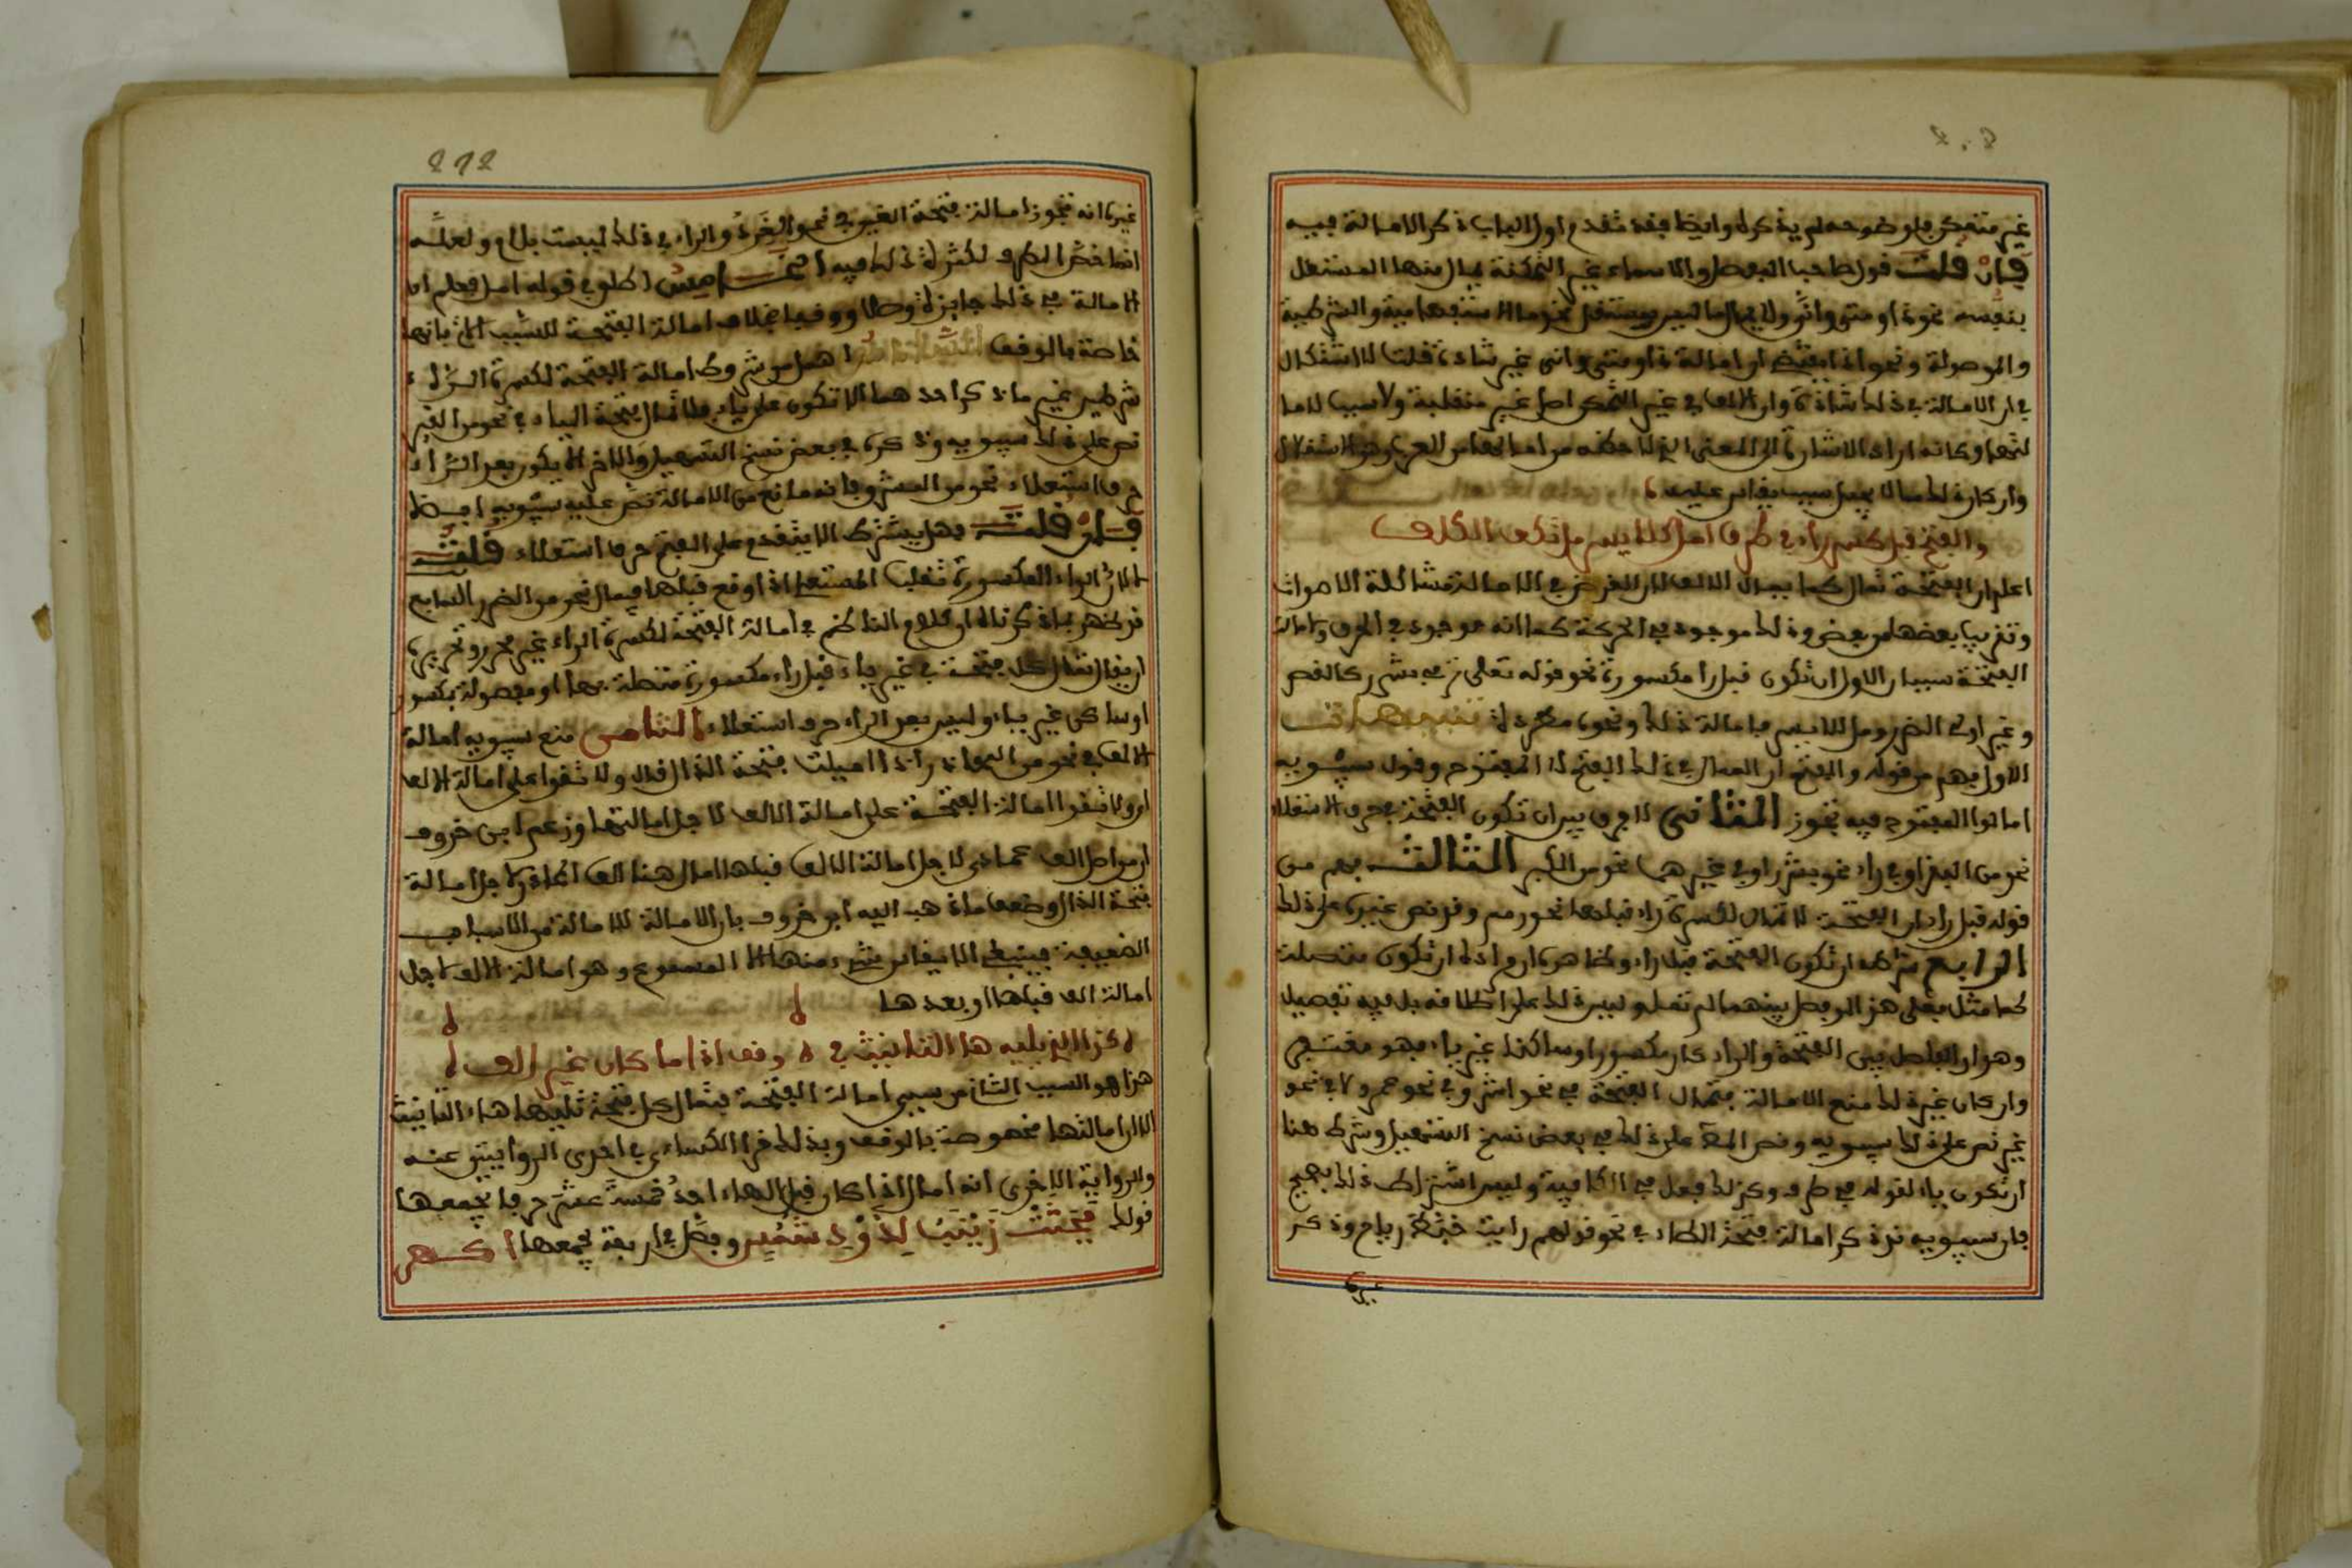 غير متمكن فلوضوحه لم يذكره وايضا فقد تقدم اول الباب ذكر الامالة فيه
فان قلت قول صاحب المفصل والاسماء غير المتمكنة يمال منها المستقل
بنفسه نحو ذا ومتى وانى ولا يمال ما ليس بمستقل نحو ما الاستفهامية والشرطية
والموصولة ونحو اذا يقتضي ان امالة ذا ومتى وانى غير شاذة قلت لا اشكال
في ان الامالة في ذلك شاذة وان الالف في غير المتمكن اصل غير منقلبة ولا سبب لاما
لتها وكانه اراد الاشارة الى المعنى الذي لاحظه من امالها من العرب وهو الاستقلال
وان كان ذلك مما لا يصل سببا يقاس عليه
والفتح قبل كسر راء في طرف امل كللايسر مل تكف الكلف
اعلم ان الفتحة تمال كما يمال الالف لان الغرض في الامالة مشاكلة الاصوات
وتقريب بعضها من بعض وذلك موجود في الحركة كما انه موجود في الحرف ولامالة
الفتحة سببان الاول ان تكون قبل راء مكسورة نحو قوله تعلى ترمي بشرر كالقصر
وغير اولي الضرر ومل للايسر فامالة ذلك ونحوه مطردة تنبيهات
الاول فهم من قوله والفتح ان الممال في ذلك الفتح لا المفتوح وقول سيبويه
امالوا المفتوح فيه تجوز الثاني لا فرق بين ان تكون الفتحة في حرف الاستعلاء
نحو من البقر او في راء نحو بشرر او في غيرهما نحو من الكبر الثالث فهم من
قوله قبل راء ان الفتحة لا تمال لكسرة راء قبلها نحو رمم وقد نص غيره على ذلك
الرابع شرطه ان تكون الفتحة قبل راء وظاهره ان مراده ان تكون متصلة
كما مثل فعلى هذا لو فصل بينهما لم تمل وليس ذلك على اطلاقه بل فيه تفصيل
وهو ان الفاصل بين الفتحة والراء ان كان مكسورا او ساكنا غير ياء فهو مغتفر
وان كان غير ذلك منع الامالة فتمال الفتحة في نحو اشر وفي نحو عمرو لا في نحو
غير نص على ذلك سيبويه ونص المص على ذلك في بعض نسخ التسهيل وشرط هنا
ان تكون ياء لقوله في طرف وكذلك فعل في الكافية وليس اشتراط ذلك بصحيح
فان سيبويه قد ذكر امالة فتحة الطاء في نحو قولهم رايت خبط رياح وذكر
غيره
272
غيره انه تجوز امالة فتحة العين في نحو العَرَد والراء في ذلك ليست بلام ولعله
انما خص الطرف لكثرة ذلك فيه الخامس اطلق في قوله امل فعلم ان
الامالة في ذلك جايزة وصلا ووقفا بخلاف امالة الفتحة للسبب الاتي فانها
خاصة بالوقف السادس اهمل من شروط امالة الفتحة لكسرة الراء
شرطين غير ما ذكر احدهما الا تكون على ياء فلا تمال فتحة الياء في نحو من الغير
نص على ذلك سيبويه وذكره في بعض نسخ التسهيل والاخر الا يكون بعد الراء
حرف استعلاء نحو من الشرق فانه مانع من الامالة نص عليه سيبويه ايضا
فان قلت فهل يشترط الا يتقدم على الفتح حرف استعلاء قلت
لا لان الراء المكسورة تغلب المستعلي اذا وقع قبلها فيمال نحو من الضرر السابع
قد ظهر بما ذكرناه ان كلام الناظم في امالة الفتحة لكسرة الراء غير محرر وتحريره
ان يقال تمال كل فتحة في غير ياء قبل راء مكسورة متصلة بها او مفصولة بكسر
او ساكن غير ياء وليس بعد الراء حرف استعلاء الثامن منع سيبويه امالة
الالف في نحو من المحاذر اذا اميلت فتحة الذال قال ولا تقوا على امالة الالف
اي ولا تقوا امالة الفتحة على امالة الالف لاجل امالتها وزعم ابن خروف
ان من امال الف عمادى لاجل امالة الالف قبلها امال هنا الف المحاذر لاجل امالة
فتحة الذال وضعف ما ذهب اليه ابن خروف بان الامالة للامالة من الاسباب
الضعيفة فينبغي الا ينقاس شيء منها الا المسموع وهو امالة الالف لاجل
امالة الف قبلها او بعدها
كذا الذي يليه ها التانيث في وقف اذا ما كان غير الف
هذا هو السبب الثاني من سببي امالة الفتحة فتمال كل فتحة تليها هاء التانيث
الا ان امالتها مخصوصة بالوقف وبذلك قرا الكساءي في احدى الروايتين عنه
والرواية الاخرى انه امال اذا كان قبل الهاء احد خمسة عشر حرفا يجمعها
قولك فجثت زينب لذود شمس وفصل في اربعة يجمعها اكهر